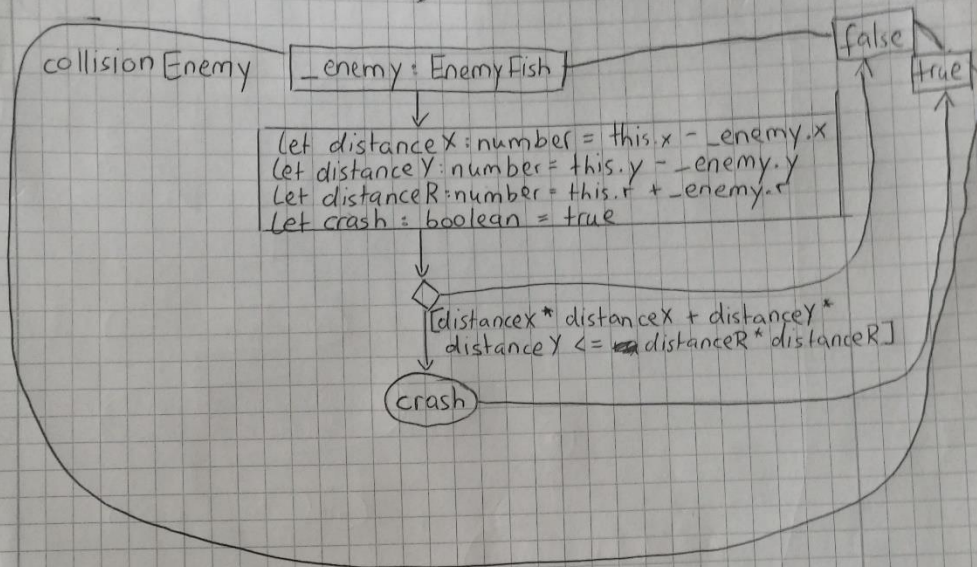 false
true
collisionEnemy
_enemy: EnemyFish
let distanceX:number = this.x - _enemy.x
let distanceY:number = this.y - _enemy.y
let distanceR:number = this.r + _enemy.r
let crash: boolean = true
[distanceX * distanceX + distanceY *
distanceY <= distanceR * distanceR]
crash